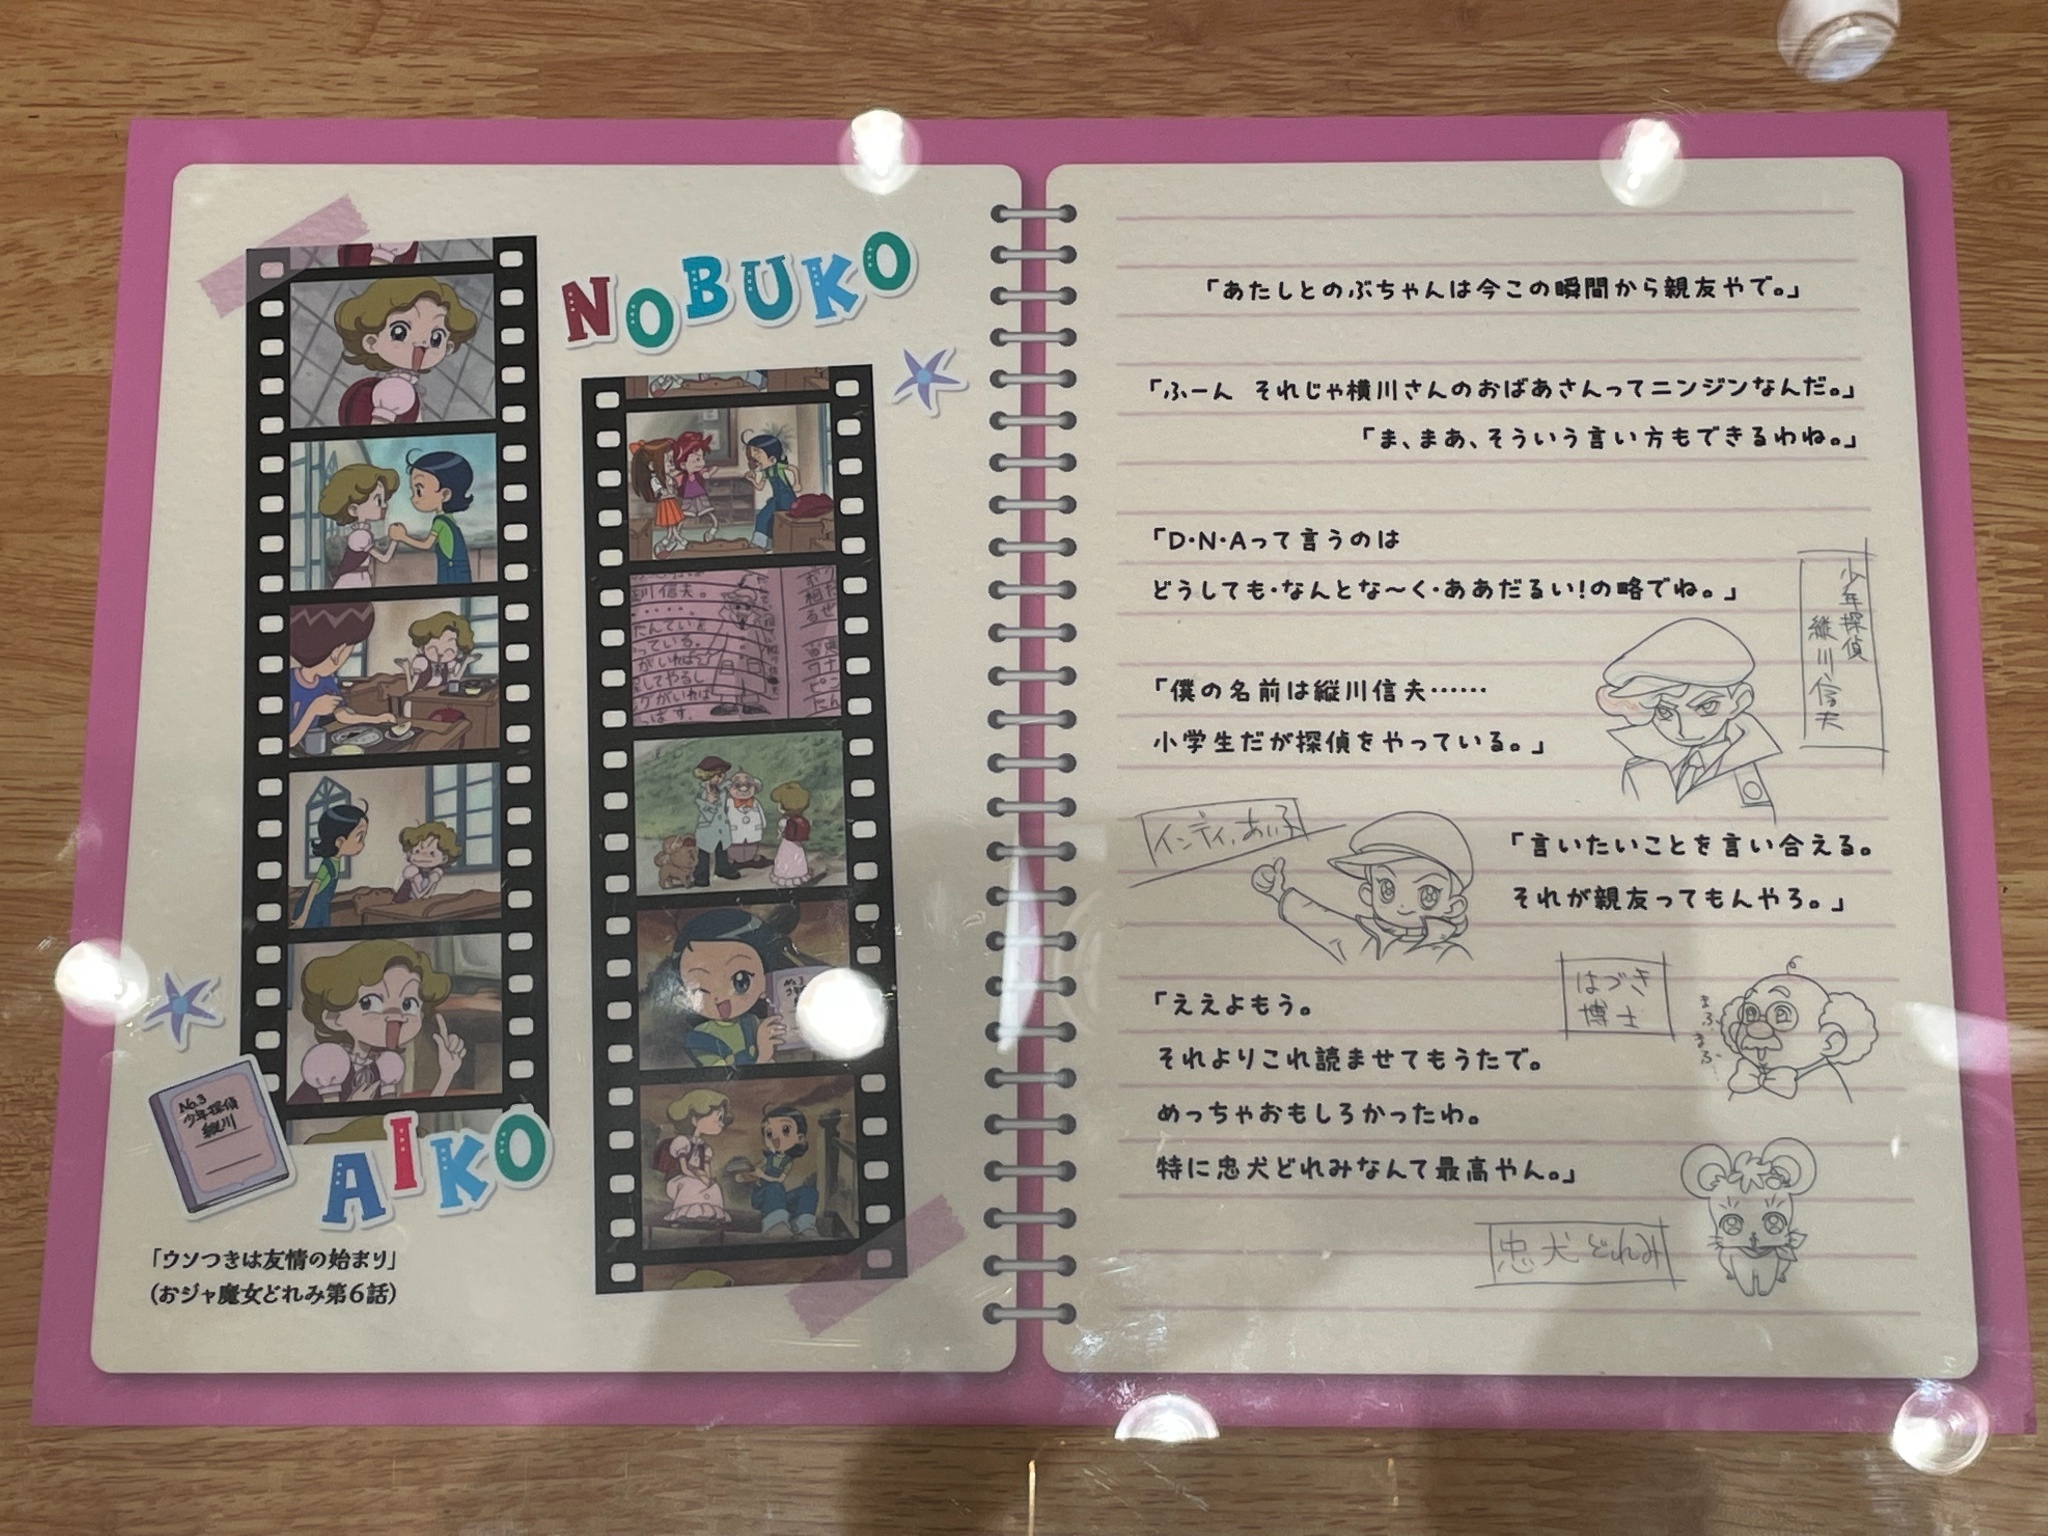 NOBUKO
No.3
少年探偵
縦川
AIKO
「ウソつきは友情の始まり」
(おジャ魔女どれみ第6話)
「あたしとのぶちゃんは今この瞬間から親友やで。」
「ふーん それじゃ横川さんのおばあさんってニンジンなんだ。」
「ま、まあ、そういう言い方もできるわね。」
「D・N・Aって言うのは
どうしても・なんとな〜く・ああだるい!の略でね。」
少年探偵
縦川信夫
「僕の名前は縦川信夫……
小学生だが探偵をやっている。」
インディ・あい子
「言いたいことを言い合える。
それが親友ってもんやろ。」
はづき
博士
まふ
まふ
「ええよもう。
それよりこれ読ませてもうたで。
めっちゃおもしろかったわ。
特に忠犬どれみなんて最高やん。」
忠犬どれみ